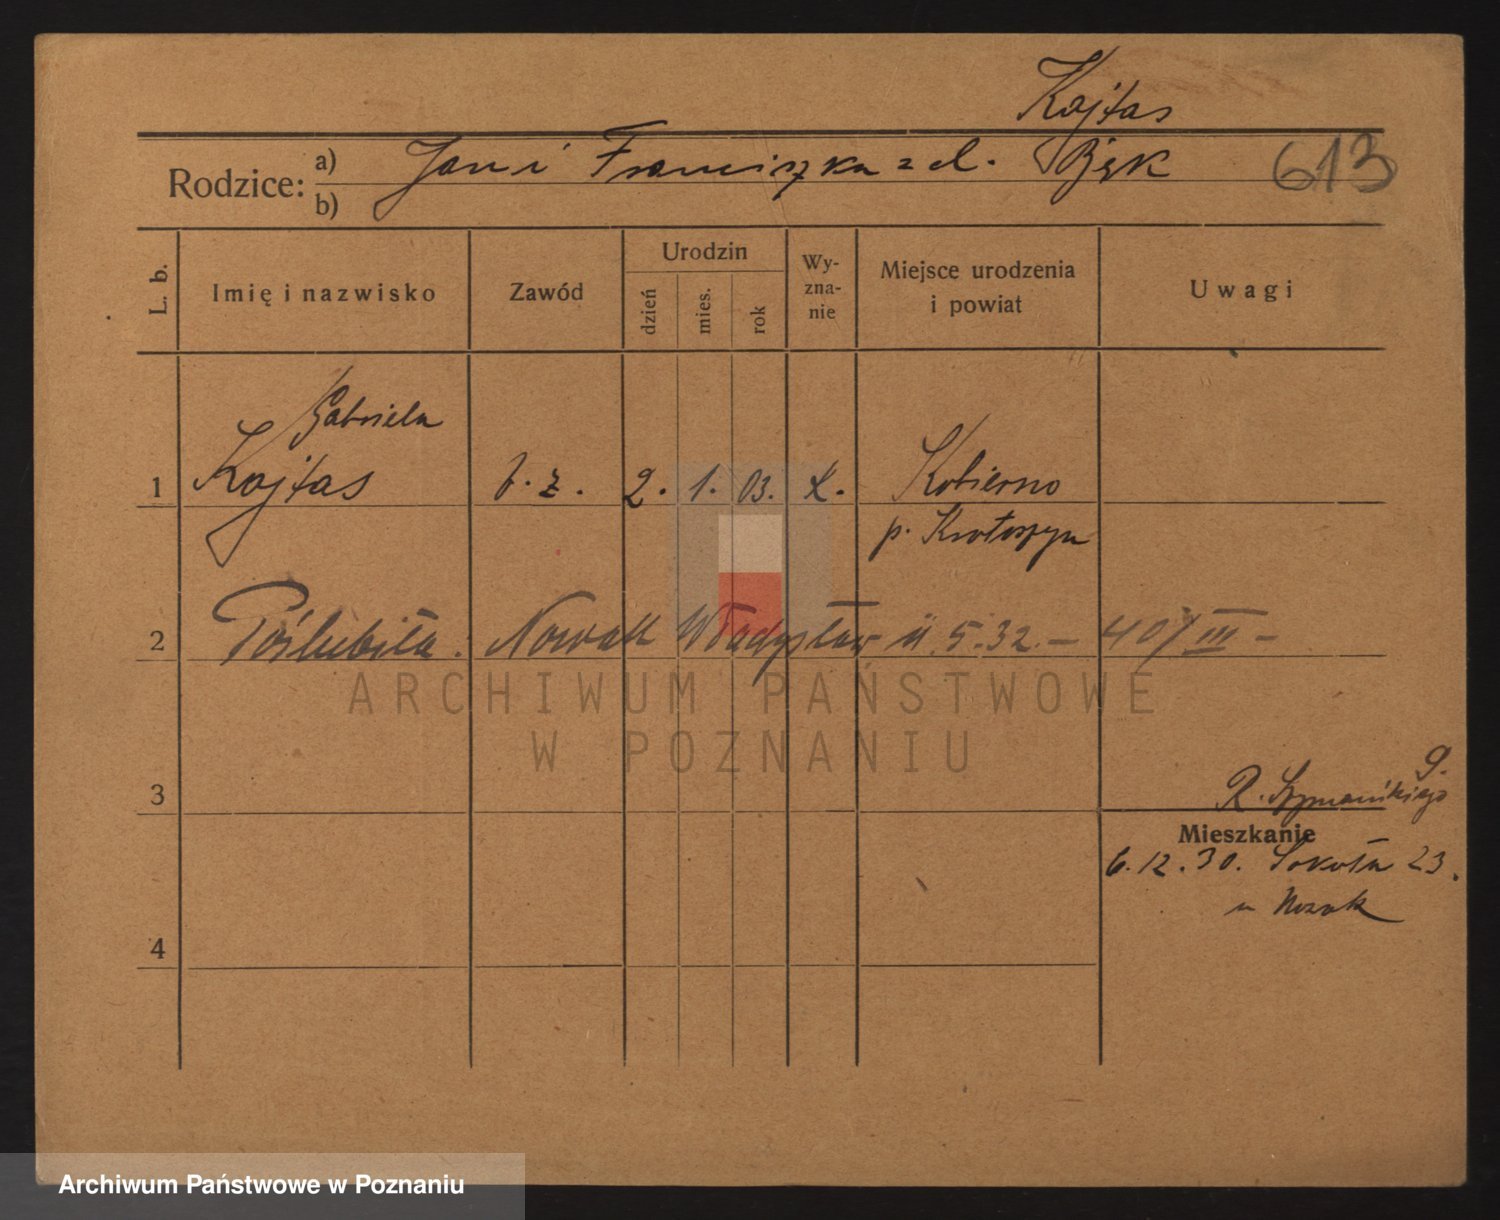 Kajtas
Rodzice: a) Jan i Franciszka z d. Bąk 613
b)
L. b. Imię i nazwisko Zawód Urodzin dzień mies. rok Wyznanie Miejsce urodzenia i powiat Uwagi
Gabriela
1 Kajtas b. z. 2. 1. 03. k. Kobierno
p. Krotoszyn
2 Poślubiła: Nowak Władysław 5.32. – 40/III –
ARCHIWUM PAŃSTWOWE
W POZNANIU
3 R. Szymańskiego 9.
Mieszkanie
6.12.30. Sokoła 23.
u Nowak
4
Archiwum Państwowe w Poznaniu